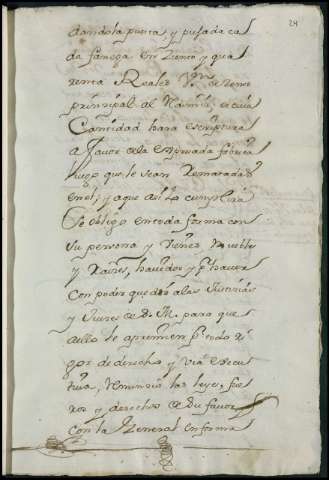 24
dandola puesta y pesada ca
da fanega en ciento y qua
renta Reales Vn. de
principal de Cuia
Cantidad hara escriptura
a favor de la expresada
luego que le sean Rematadas
en el, y a que asi lo cumplira
Se obligo en toda forma con
su persona y vienes Mueble
y Raizes, havidos y pr. haver
Con poder que dió a las Justicias
y Juezes de S. M. para que
a ello le apremien pr. todo Ri
gor de derecho y via execu
tiva, Renuncio las leyes, fue
ros y derechos de su favor
con la General en forma